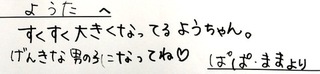 ようた へ
すくすく大きくなってる ようちゃん。
げんきな男の子になってね♡ ぱぱ・ままより